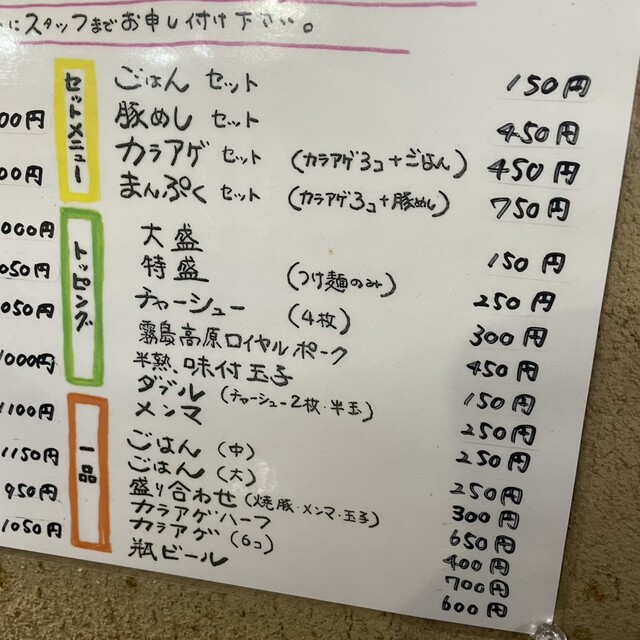 にスタッフまでお申し付け下さい。
セットメニュー
ごはん セット 150円
豚めし セット 450円
カラアゲ セット (カラアゲ3コ+ごはん) 450円
まんぷく セット (カラアゲ3コ+豚めし) 750円
トッピング
大盛 150円
特盛 (つけ麺のみ) 250円
チャーシュー (4枚) 300円
霧島高原ロイヤルポーク 450円
半熟、味付玉子 150円
ダブル (チャーシュー2枚・半玉) 250円
メンマ 250円
一品
ごはん (中) 250円
ごはん (大) 300円
盛り合わせ (焼豚・メンマ・玉子) 650円
カラアゲハーフ 400円
カラアゲ (6コ) 700円
瓶ビール 600円
00円
00円
000円
050円
050円
1000円
1100円
1150円
950円
1050円